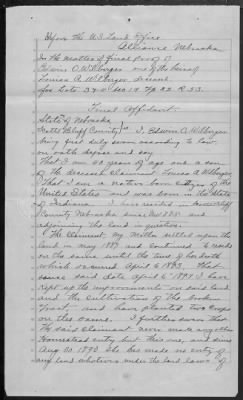 Before the U.S. Land Office
Alliance Nebraska
In the Matter of Final Proof of
Edwin O. Wilburger one of the heirs of
Louisa A. Wilburger deceased
for Lots 3 & 4 Sec 19 Tp 22 R 53.
Final Affidavit.
State of Nebraska
Scotts Bluff County I, Edwin O. Wilburger
being first duly sworn according to law,
on oath depose and say
That I am years of age and a son
of the deceased Claimant Louisa A. Wilburger
That I am a native born citizen of the
United States and was born in the State
of Indiana I have resided in Scotts Bluff
County Nebraska since and
adjoining the land in question.
The Claimant My Mother settled upon the
land in May 1889 and continued to reside
on the same until the time of her death
which occurred April 6 1893. That
since said date April 6" 1893 I have
kept up the improvements on said land
and the Cultivation of the broken
Tract, and have planted two crops
on the same. I further swear that
the said claimant never made another
Homestead entry but this one, and since
Aug 30 1890 She has made no entry of
any land whatever under the land laws of